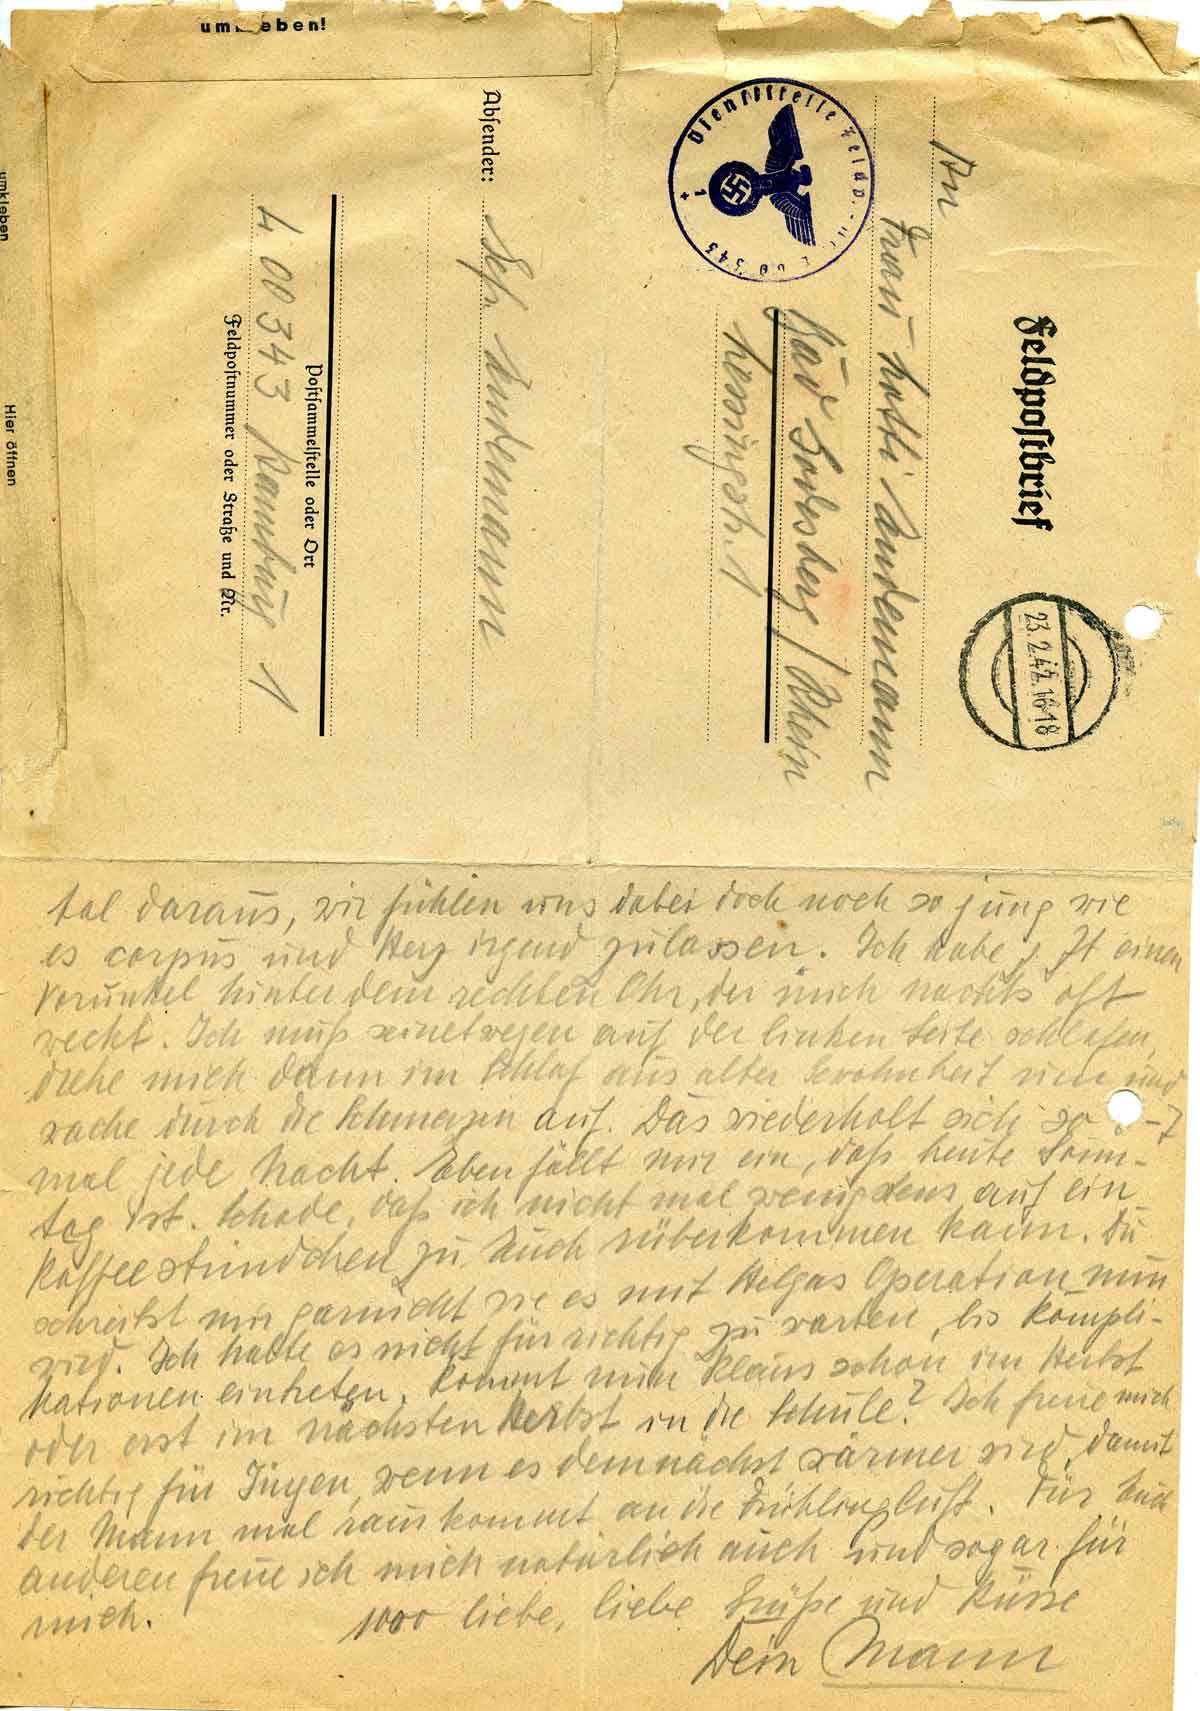 umkleben!
umkleben
Hier öffnen
Feldpostbrief
23.2.42.16-18
Dienststelle Feldp.-Nr. L 00343
1
An
Frau Lotti Andemann
Bad Godesberg/Rhein
Lessingstr. 1
Absender:
Gefr. Andemann
Postsammelstelle oder Ort
L 00343 Hamburg 1
Feldpostnummer oder Straße und Nr.
tal daraus, wir fühlen uns dabei doch noch so jung wie
es corpus und Herz irgend zulassen. Ich habe z. Zt einen
Vorunkel hinter dem rechten Ohr, der mich nachts oft
weckt. Ich muß seinetwegen auf der linken Seite schlafen,
drehe mich dann im Schlaf aus alter Gewohnheit rum und
wache durch die Schmerzen auf. Das wiederholt sich so -7
mal jede Nacht. Eben fällt mir ein, daß heute Sonn-
tag ist. Schade, daß ich nicht mal wenigstens auf ein
Kaffeestündchen zu Euch rüberkommen kann. Du
schreibst mir garnicht wie es mit Helgas Operation nun
wird. Ich halte es nicht für richtig zu warten, bis Kompli-
kationen eintreten. Kommt nun Klaus schon im Herbst
oder erst im nächsten Herbst in die Schule? Ich freue mich
richtig für Jürgen, wenn es demnächst wärmer wird, damit
der Mann mal raus kommt an die Frühlingsluft. Für Euch
anderen freue ich mich natürlich auch und sogar für
mich. 1000 liebe, liebe Grüße und Küsse
Dein Mann